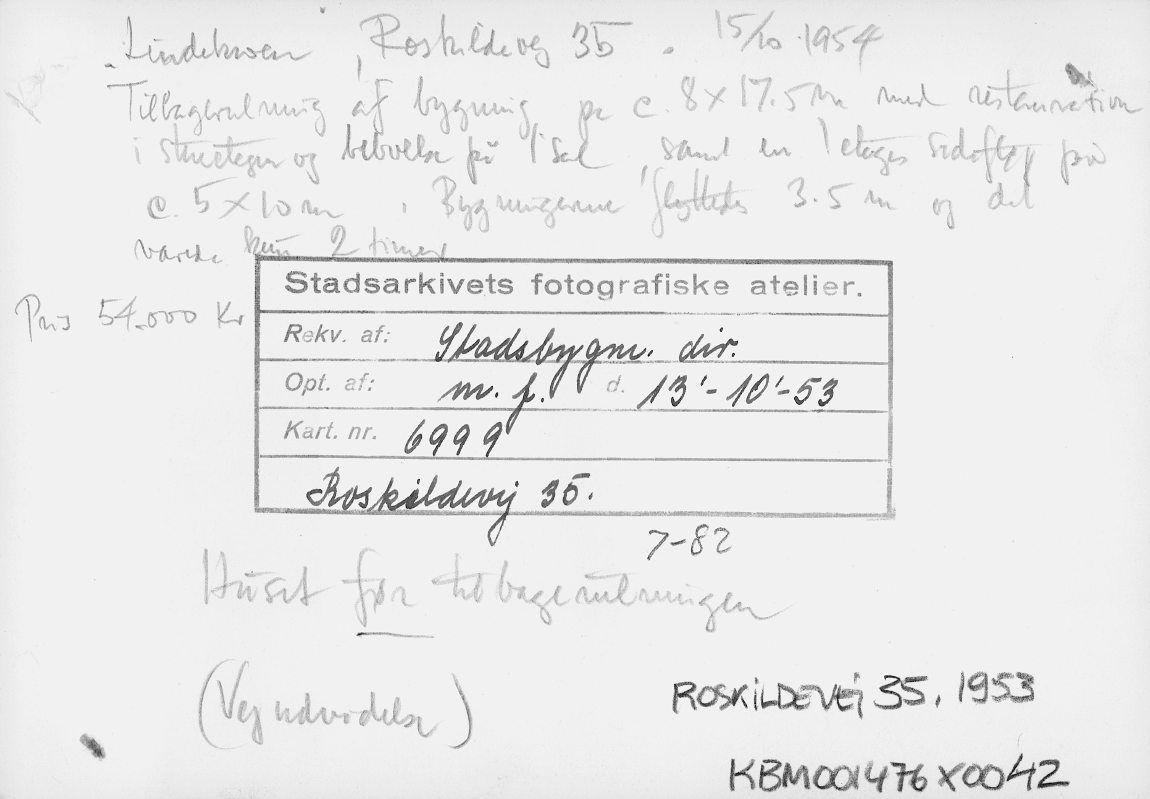 Lindekroen, Roskildevej 35. 15/10 1954
Tilbagerulning af bygning på c. 8 x 17.5 m med restauration
i stueetagen og beboelse på 1 sal, samt en 1 etages sidefløj på
c. 5 x 10 m. Bygningerne flyttedes 3.5 m og det
varede kun 2 timer
Pris 54.000 Kr
Stadsarkivets fotografiske atelier.
Rekv. af: Stadsbygm. dir.
Opt. af: m. f. d. 13'-10'-53
Kart. nr. 6999
Roskildevej 35.
7-82
Huset før tilbagerulningen
(Vejudvidelse)
ROSKILDEVEJ 35, 1953
KBM001476X0042